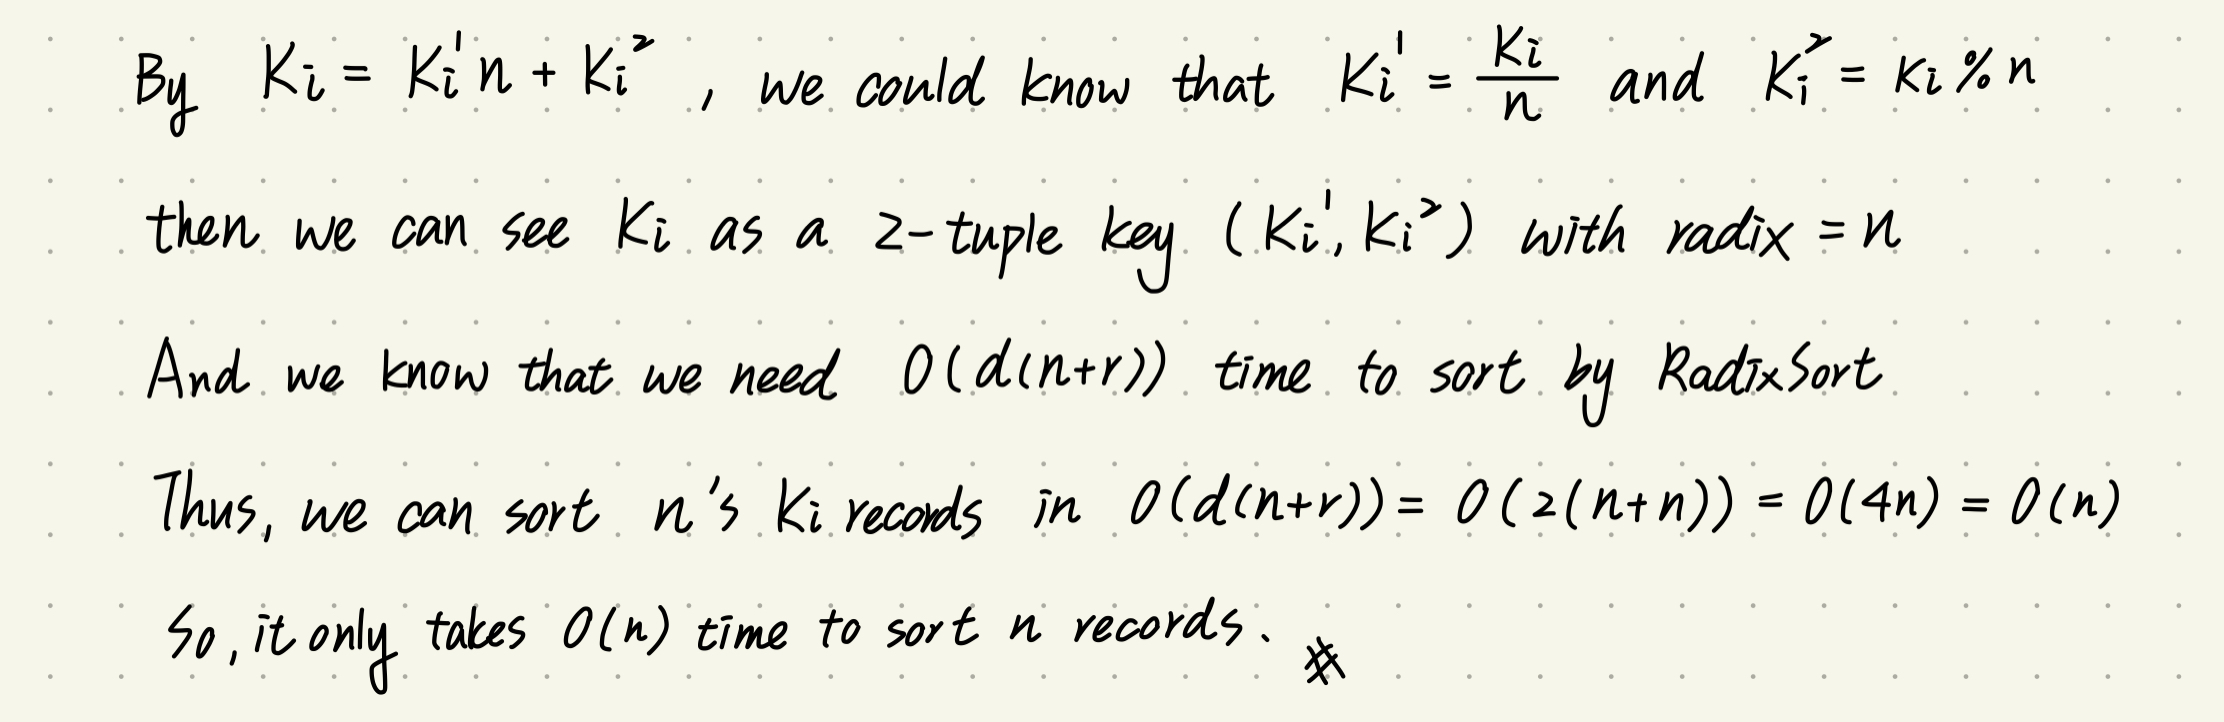 By Ki = Ki¹n + Ki², we could know that Ki¹ = Ki/n and Ki² = Ki % n
then we can see Ki as a 2-tuple key (Ki¹, Ki²) with radix = n
And we know that we need O(d(n+r)) time to sort by RadixSort
Thus, we can sort n's Ki records in O(d(n+r)) = O(2(n+n)) = O(4n) = O(n)
So, it only takes O(n) time to sort n records. #